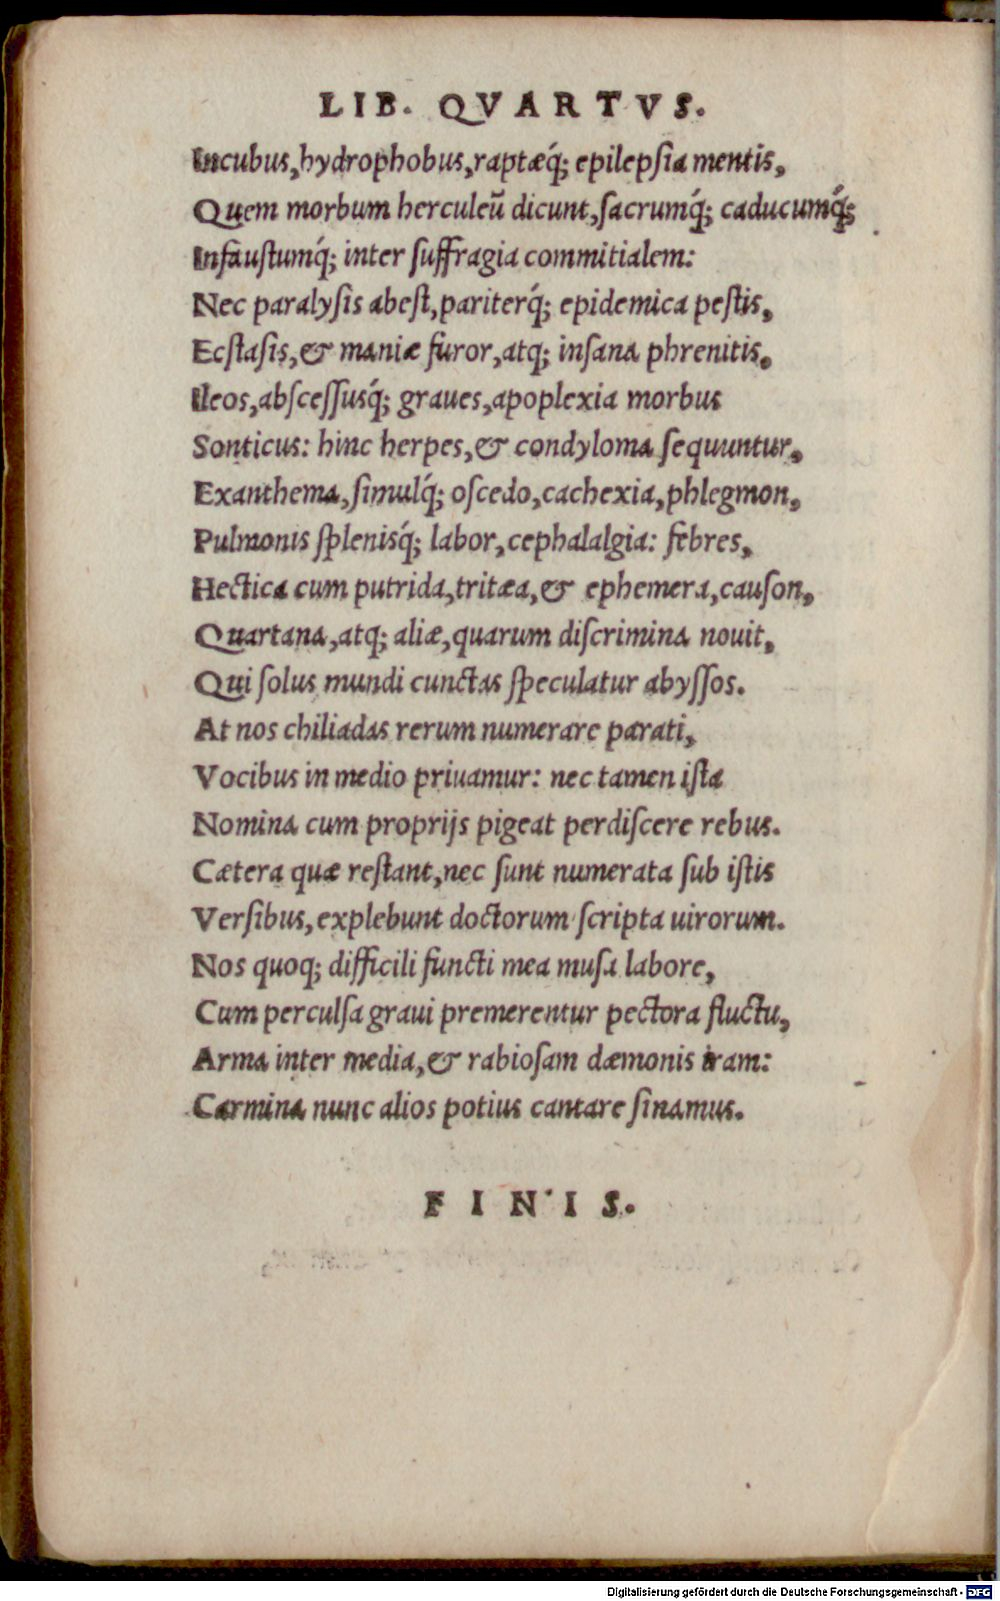 LIB. QVARTVS.
Incubus, hydrophobus, raptæq́; epilepſia mentis,
Quem morbum herculeũ dicunt, ſacrumq́; caducumq́;
Infauſtumq́; inter ſuffragia commitialem:
Nec paralyſis abeſt, pariterq́; epidemica peſtis,
Ecſtaſis, & maniæ furor, atq; inſana phrenitis,
Ileos, abſceſſusq́; graues, apoplexia morbus
Sonticus: hinc herpes, & condyloma ſequuntur,
Exanthema, ſimulq́; oſcedo, cachexia, phlegmon,
Pulmonis ſplenisq́; labor, cephalalgia: febres,
Hectica cum putrida, tritæa, & ephemera, cauſon,
Quartana, atq; aliæ, quarum diſcrimina nouit,
Qui ſolus mundi cunctas ſpeculatur abyſſos.
At nos chiliadas rerum numerare parati,
Vocibus in medio priuamur: nec tamen iſta
Nomina cum proprijs pigeat perdiſcere rebus.
Cætera quæ reſtant, nec ſunt numerata ſub iſtis
Verſibus, explebunt doctorum ſcripta uirorum.
Nos quoq; difficili functi mea muſa labore,
Cum perculſa graui premerentur pectora fluctu,
Arma inter media, & rabioſam dæmonis iram:
Carmina nunc alios potius cantare ſinamus.
FINIS.
Digitalisierung gefördert durch die Deutsche Forschungsgemeinschaft - DFG